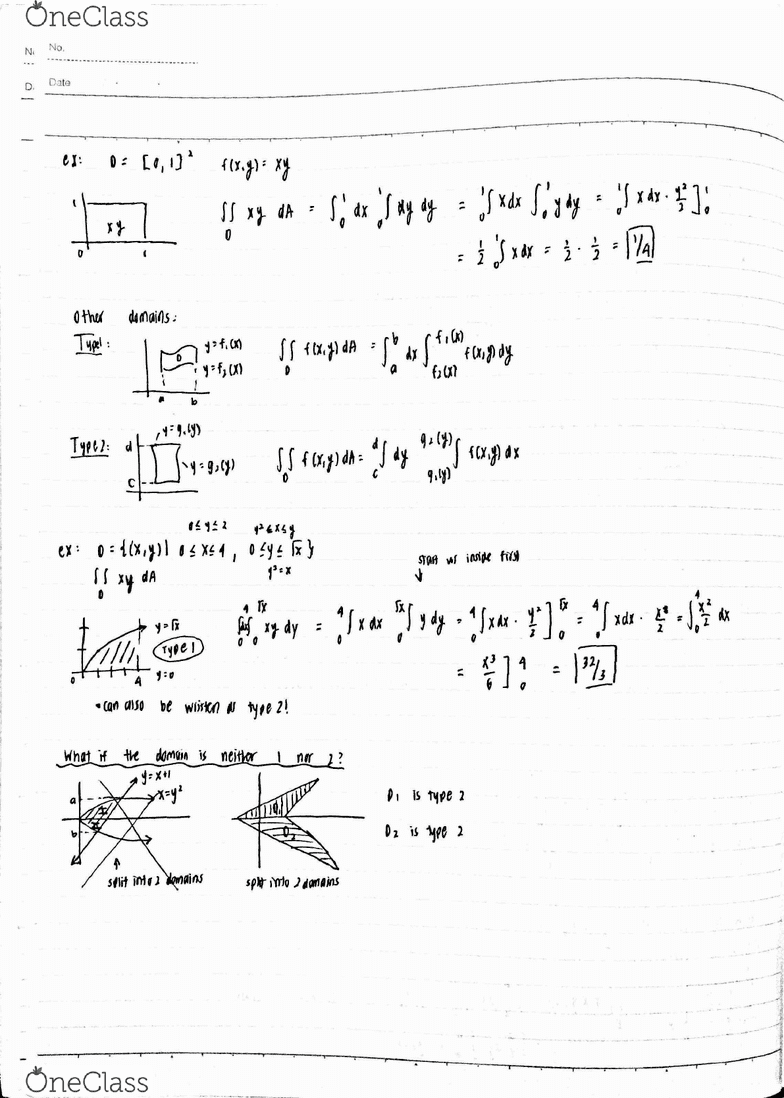 OneClass
No.
Date
ex: D = [0,1]² f(x,y) = xy
∬_D xy dA = ∫₀¹ dx ₀∫¹ xy dy = ₀∫¹ x dx ∫₀¹ y dy = ₀∫¹ x dx · y²/2 ]₀¹
1
xy
0 1
= 1/2 ₀∫¹ x dx = 1/2 · 1/2 = 1/4
Other domains:
Type 1:
y = f₁(x)
D
y = f₂(x)
a b
∬_D f(x,y) dA = ∫ₐᵇ dx ∫_{f₂(x)}^{f₁(x)} f(x,y) dy
Type 2:
y = g₁(y)
d
y = g₂(y)
c
∬_D f(x,y) dA = _c∫^d dy _{g₁(y)}∫^{g₂(y)} f(x,y) dx
0 ≤ y ≤ 2 y² ≤ x ≤ y
ex: D = {(x,y) | 0 ≤ x ≤ 4, 0 ≤ y ≤ √x}
y² = x
∬_D xy dA
start w/ inside first
y = √x
Type 1
0 4 y = 0
∫₀⁴ ∫₀^√x xy dy = ₀∫⁴ x dx ₀∫^√x y dy = ₀∫⁴ x dx · y²/2 ]₀^√x = ₀∫⁴ x dx · x/2 = ∫₀⁴ x²/2 dx
= x³/6 ]₀⁴ = 32/3
• can also be written as type 2!
What if the domain is neither 1 nor 2?
y = x+1
a
x = y²
b
split into 2 domains
D₁
D₂
split into 2 domains
D₁ is type 2
D₂ is type 2
OneClass